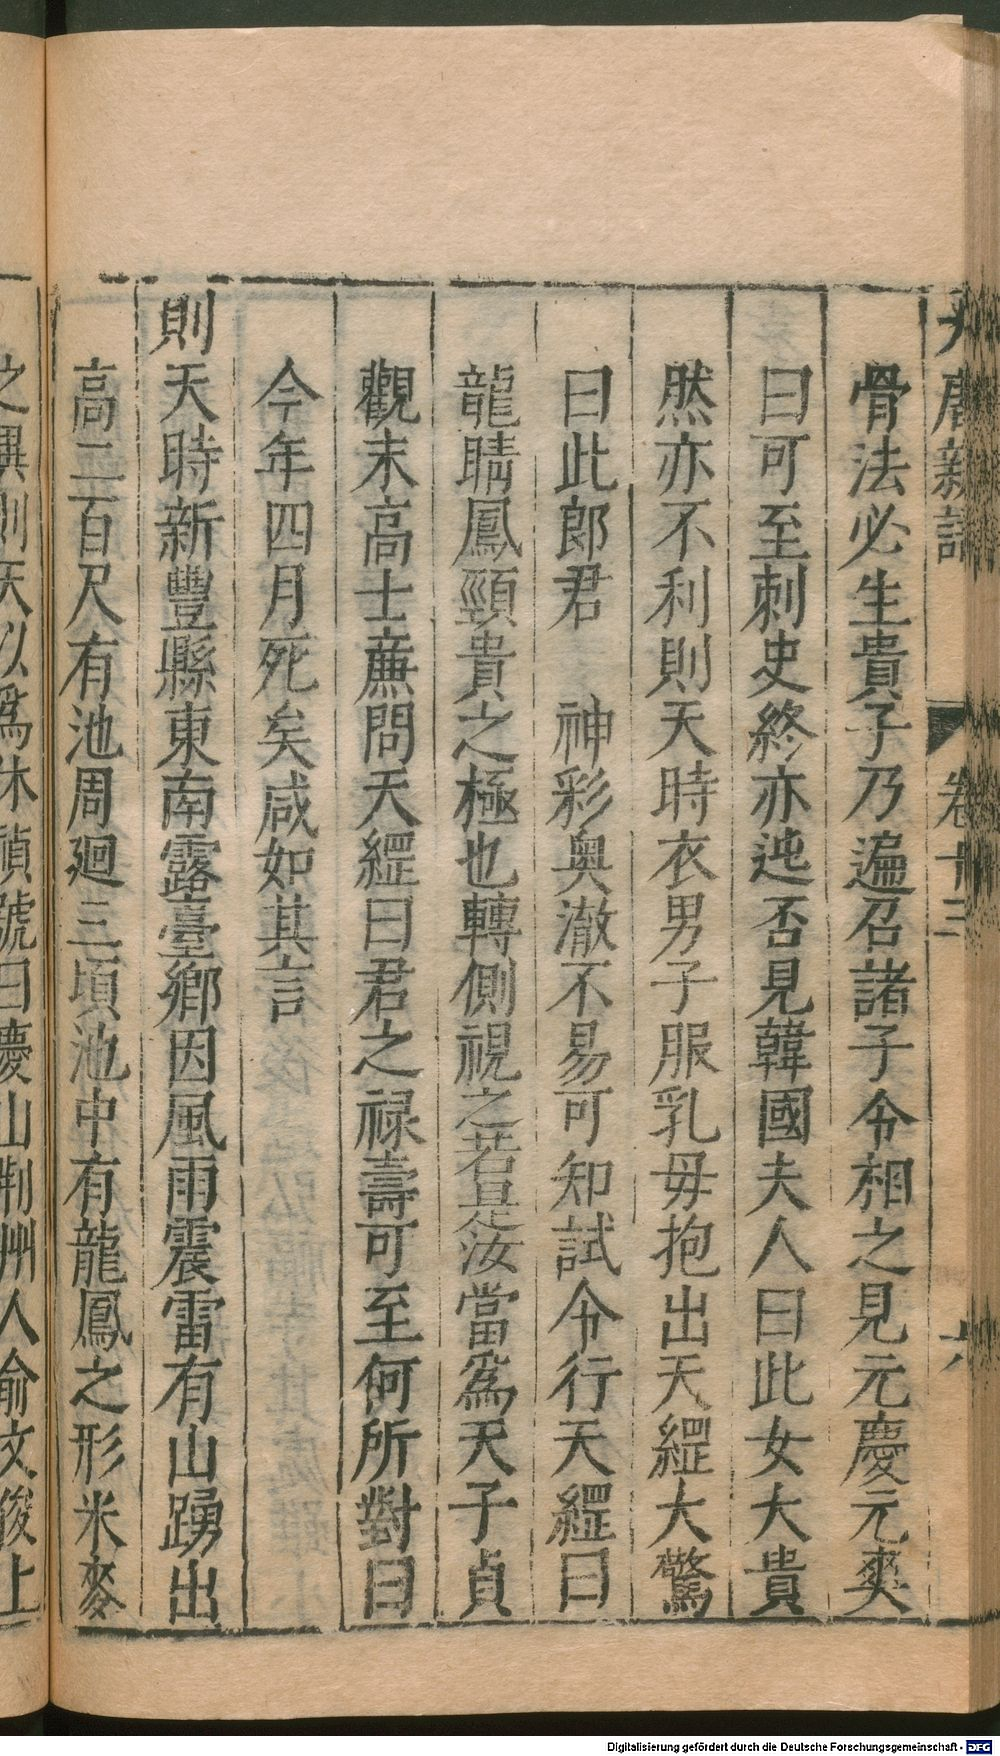 唐新語 卷十三
骨法必生貴子乃遍召諸子令相之見元慶元爽
曰可至刺史終亦迍否見韓國夫人曰此女大貴
然亦不利則天時衣男子服乳毋抱出天綱大驚
曰此郎君 神彩奥澈不易可知試令行天綱曰
龍睛鳳頸貴之極也轉側視之若是汝當爲天子貞
觀末高士廉問天綱曰君之禄壽可至何所對曰
今年四月死矣咸如其言
則天時新豐縣東南露臺鄉因風雨震雷有山踴出
高二百尺有池周廻三頃池中有龍鳳之形米麥
之異則天以爲休禎號曰慶山荆州人俞文俊上
Digitalisierung gefördert durch die Deutsche Forschungsgemeinschaft - DFG